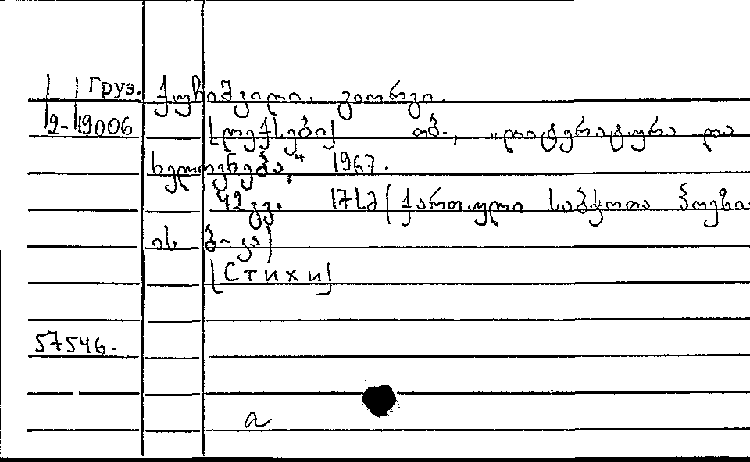 Груз. ქუჩიშვილი. გიორგი.
2-19006 [ლექსები] თბ., „ლიტერატურა და
ხელოვნება," 1967.
42 გვ. 17სმ (ქართული საბჭოთა პოეზი
ის ბ-კა)
[Стихи]
57546-
a